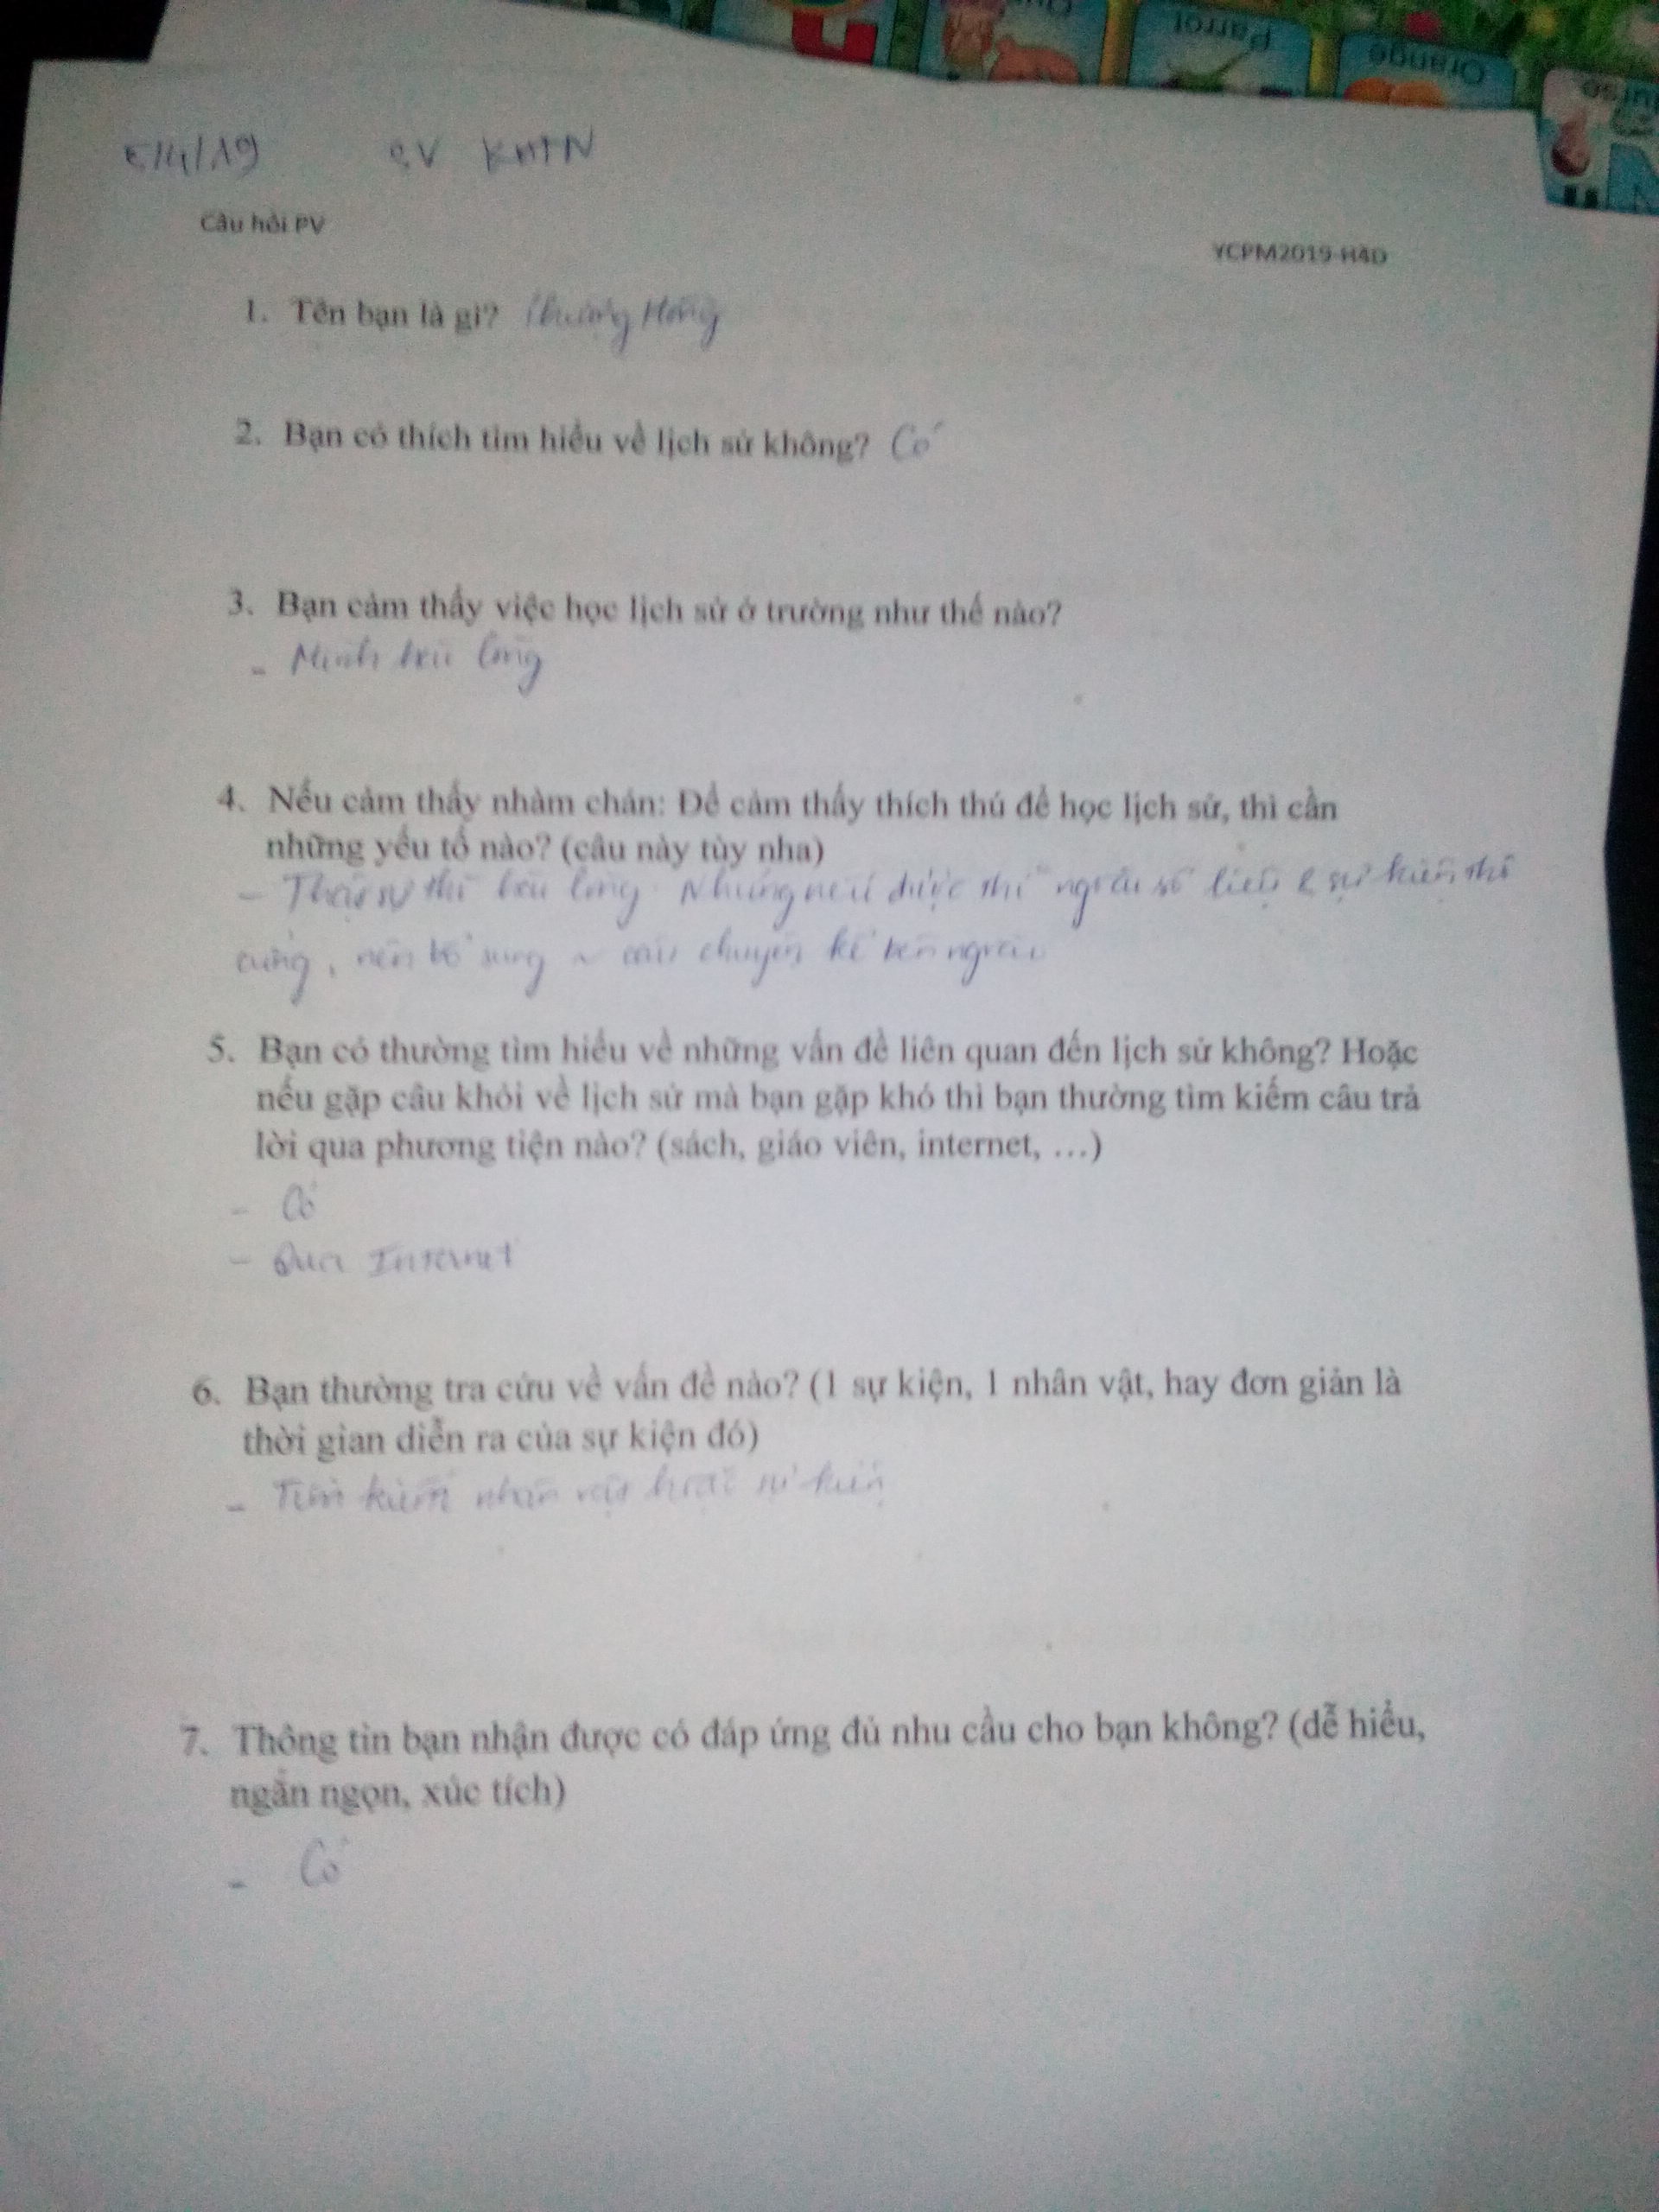 Parrot
Orange
5/4/19 SV KHTN
Câu hỏi PV
YCPM2019-H4D
1. Tên bạn là gì? Hồng
2. Bạn có thích tìm hiểu về lịch sử không? Có
3. Bạn cảm thấy việc học lịch sử ở trường như thế nào?
- Mình hài lòng
4. Nếu cảm thấy nhàm chán: Để cảm thấy thích thú để học lịch sử, thì cần
những yếu tố nào? (câu này tùy nha)
- Thật sự thì hài lòng. Nhưng nếu được thì ngoài số liệu & sự kiện khô
cứng, nên bổ sung ~ câu chuyện kể bên ngoài
5. Bạn có thường tìm hiểu về những vấn đề liên quan đến lịch sử không? Hoặc
nếu gặp câu khỏi về lịch sử mà bạn gặp khó thì bạn thường tìm kiếm câu trả
lời qua phương tiện nào? (sách, giáo viên, internet, …)
- Có
- Qua Internet
6. Bạn thường tra cứu về vấn đề nào? (1 sự kiện, 1 nhân vật, hay đơn giản là
thời gian diễn ra của sự kiện đó)
- Tìm kiếm nhân vật hoặc sự kiện
7. Thông tin bạn nhận được có đáp ứng đủ nhu cầu cho bạn không? (dễ hiểu,
ngắn ngọn, xúc tích)
- Có